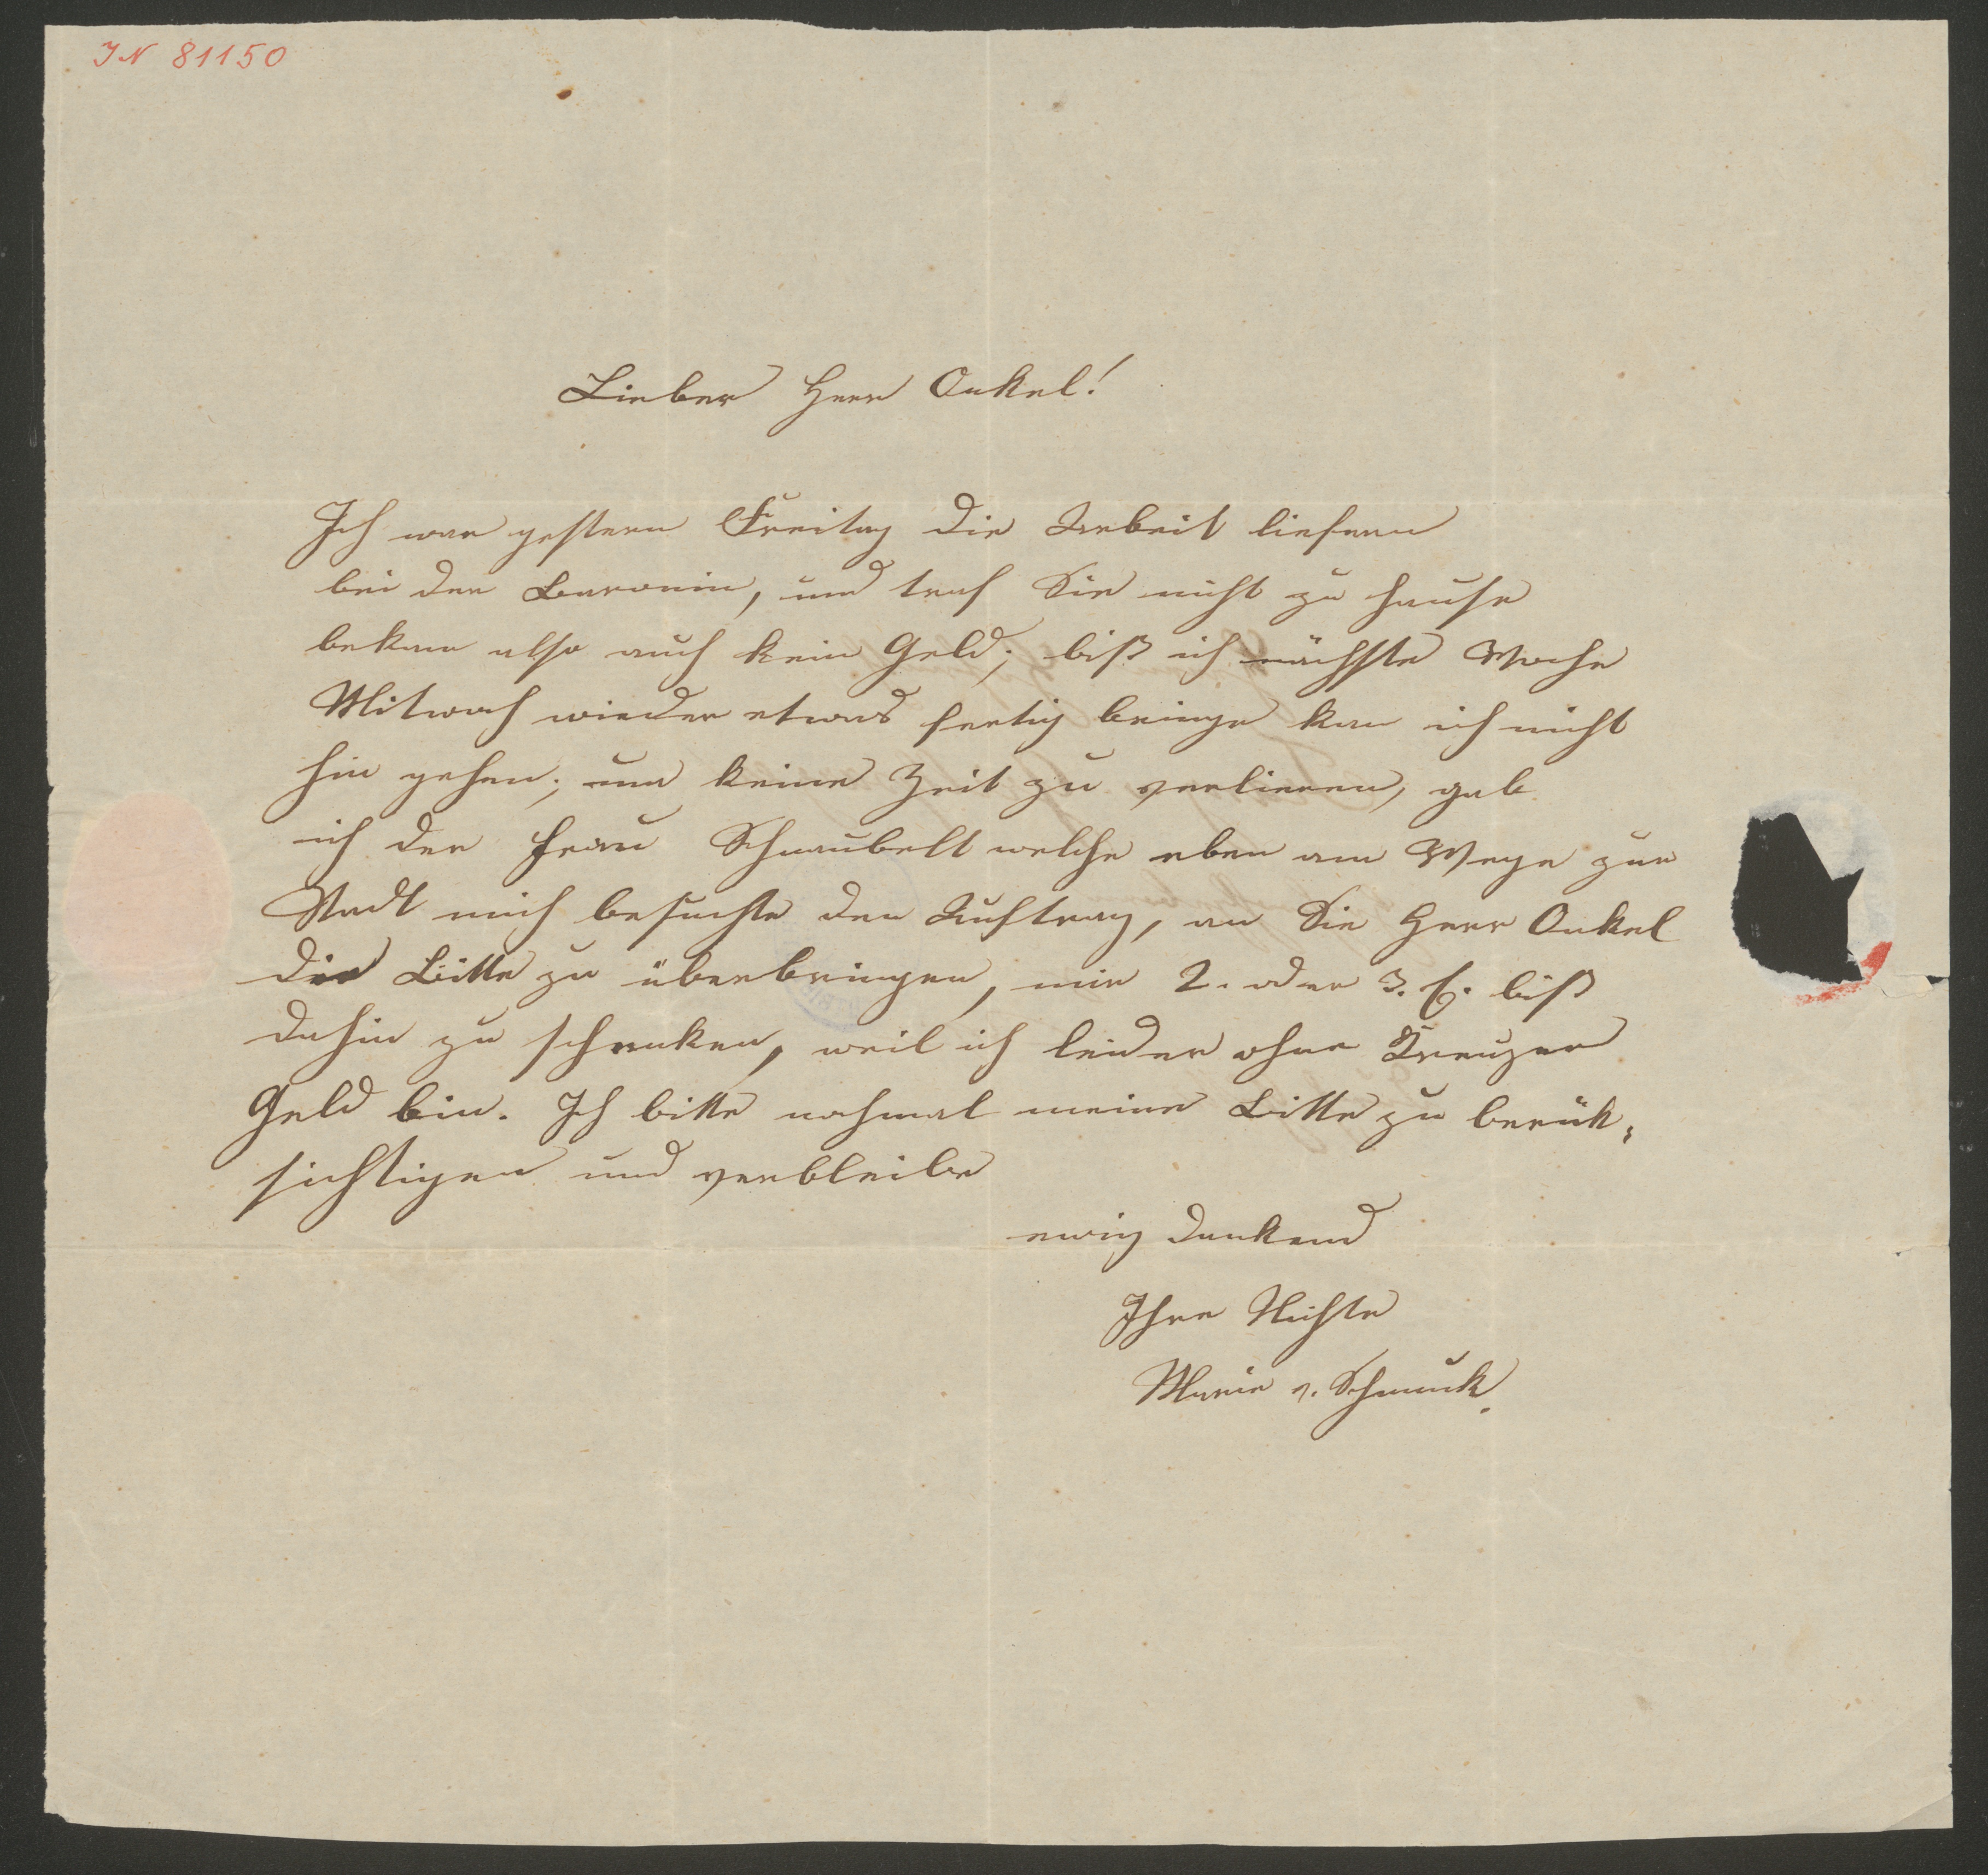 IN 81150
Lieber Herr Onkel!
Ich war gestern Freitag die Arbeit liefern
bei der Baronin, und traf Sie nicht zu hause
bekam also auch kein Geld; biß ich nächste Woche
Mitwoch wieder etwas fertig bringe kan ich nicht
hin gehen; um keine Zeit zu verlieren, gab
ich der Frau Schnaubelt welche eben am Wege zur
Stadt mich besuchte den Auftrag, an Sie Herr Onkel
die Bitte zu überbringen, mir 2. oder 3. f. biß
dahin zu schenken, weil ich leider ohne Kreuzer
Geld bin. Ich bitte nochmal meine Bitte zu berük,
sichtigen und verbleibe
ewig dankend
Ihre Nichte
Marie v. Schmuck.